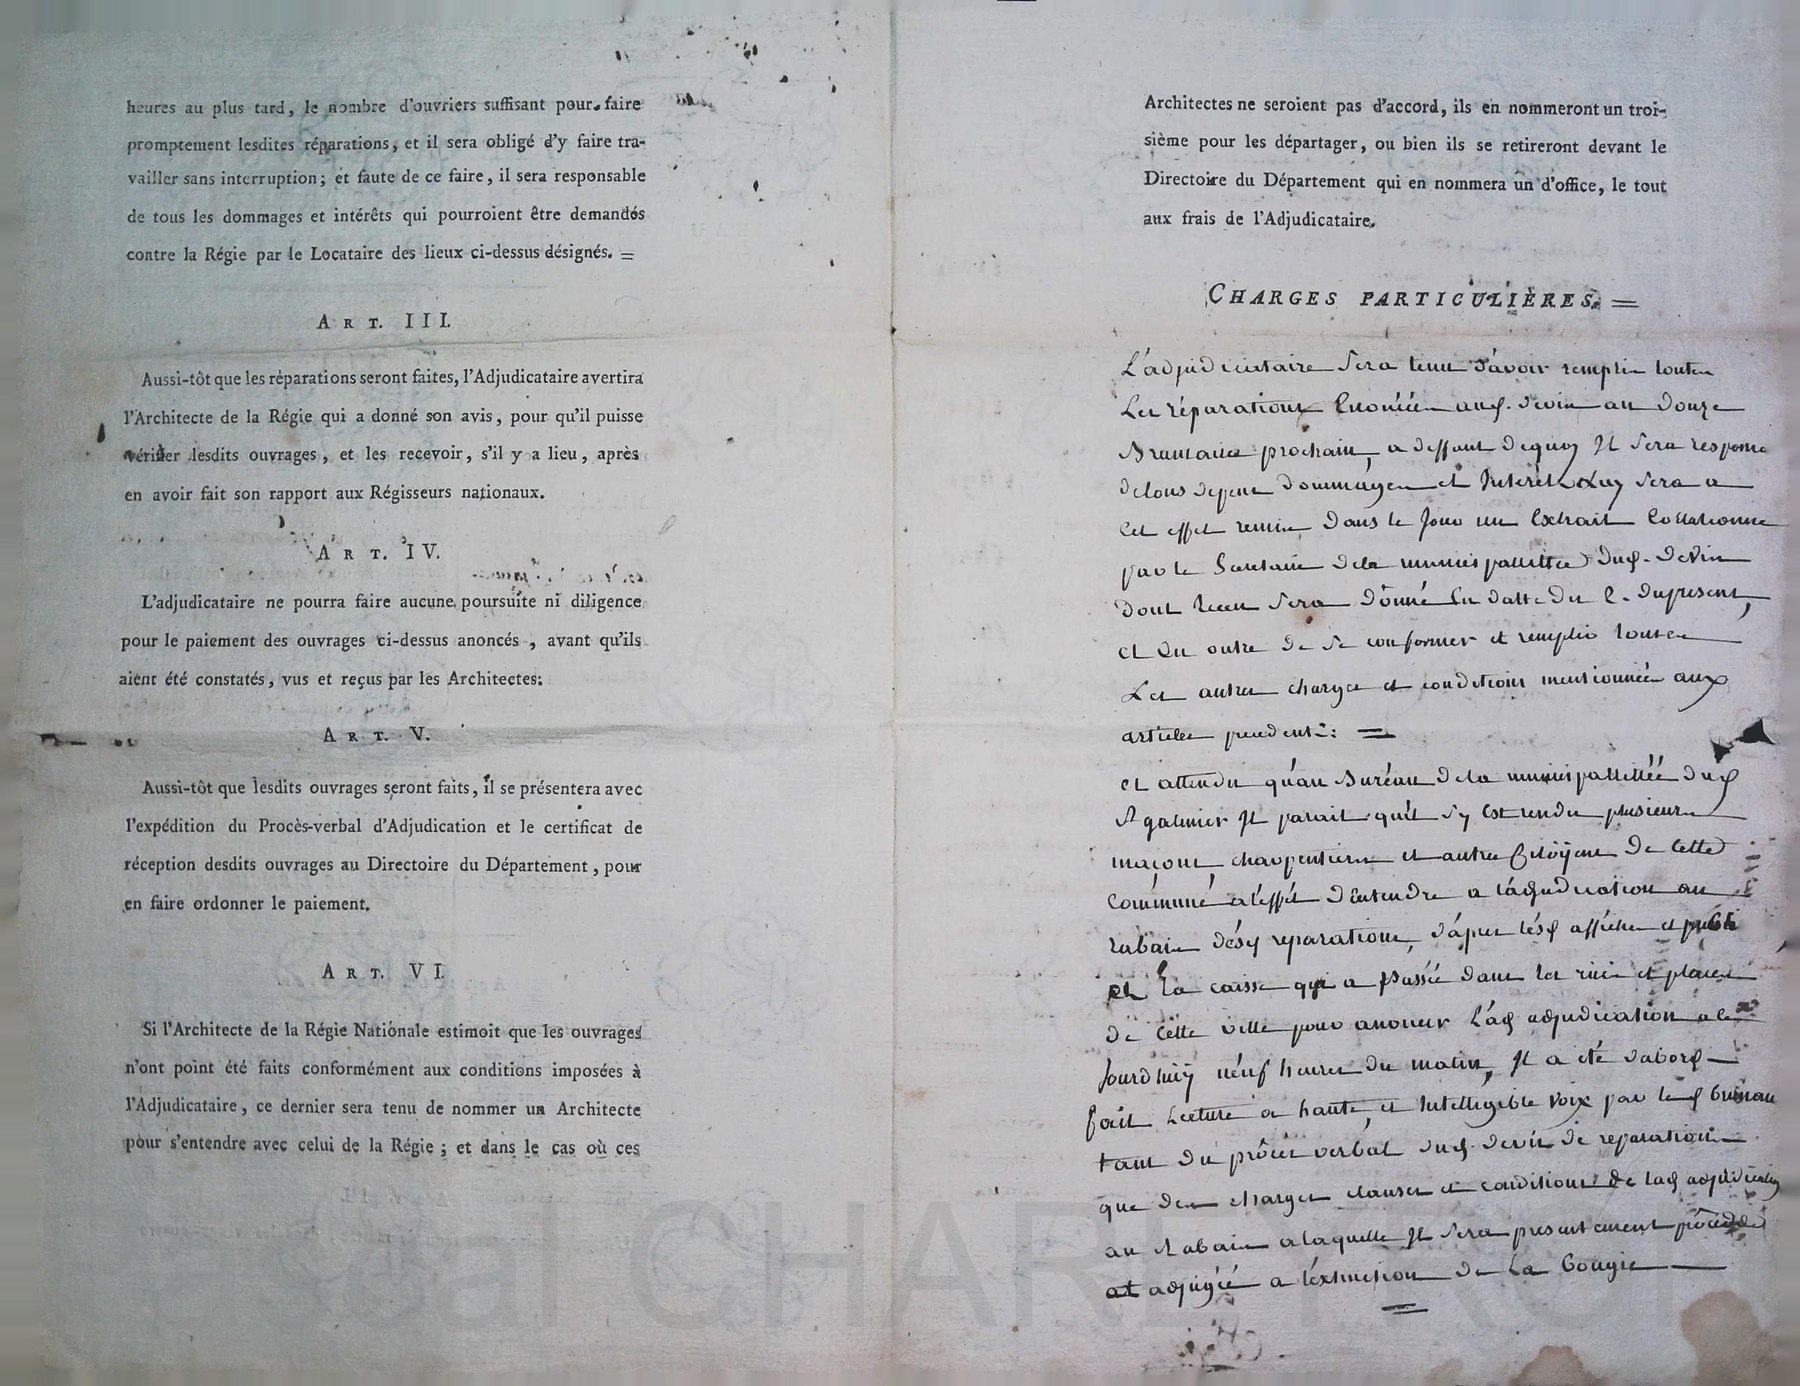 heures au plus tard, le nombre d'ouvriers suffisant pour faire
promptement lesdites réparations, et il sera obligé d'y faire tra-
vailler sans interruption; et faute de ce faire, il sera responsable
de tous les dommages et intérêts qui pourroient être demandés
contre la Régie par le Locataire des lieux ci-dessus désignés. =
ART. III.
Aussi-tôt que les réparations seront faites, l'Adjudicataire avertira
l'Architecte de la Régie qui a donné son avis, pour qu'il puisse
vérifier lesdits ouvrages, et les recevoir, s'il y a lieu, après
en avoir fait son rapport aux Régisseurs nationaux.
ART. IV.
L'adjudicataire ne pourra faire aucune poursuite ni diligence
pour le paiement des ouvrages ci-dessus anoncés, avant qu'ils
aient été constatés, vus et reçus par les Architectes:
ART. V.
Aussi-tôt que lesdits ouvrages seront faits, il se présentera avec
l'expédition du Procès-verbal d'Adjudication et le certificat de
réception desdits ouvrages au Directoire du Département, pour
en faire ordonner le paiement.
ART. VI.
Si l'Architecte de la Régie Nationale estimoit que les ouvrages
n'ont point été faits conformément aux conditions imposées à
l'Adjudicataire, ce dernier sera tenu de nommer un Architecte
pour s'entendre avec celui de la Régie; et dans le cas où ces
Architectes ne seroient pas d'accord, ils en nommeront un troi-
sième pour les départager, ou bien ils se retireront devant le
Directoire du Département qui en nommera un d'office, le tout
aux frais de l'Adjudicataire.
CHARGES PARTICULIÈRES. =
L'adjudicataire sera tenu d'avoir remplir toutes
Les réparations Enoncées aud. devis au douze
Brumaire prochain, a deffaut dequoy Il sera respons
detous depens dommages et Interêts Luy sera a
Cet effet remis dans le Jour un Extrait Collationné
par le Secretaire dela municipallittée dud. devis
dont Recu sera donné En datte du C. dupresent,
et En outre de se conformer et remplir toutes
Les autres charges et conditions mentionnées aux
articles precedents: =
et attendu qu'au Buréau dela municipallittée dud
Il parait qu'il s'y est rendu plusieurs
maçons, charpentiers et autres Citoÿens de Cette
Commune a l'effet d'Entendre a l'adjudication au
rabais désd reparations, d'après lésd affiches et publi
et La caisse qui a passée dans les rües et places
de Cette ville pour anoncer L'ad adjudication a ce
Jourdhuÿ néuf heures du matin, Il a été dabord
fait Lecture a haute et Intelligible voix par led
tant du procès verbal dud. devis de reparations
que des charges clauses et conditions de lad adjudication
au Rabais a laquelle Il sera presentement procédé
et adjugée a l'éxtinction de La Bougie
=
CHAR